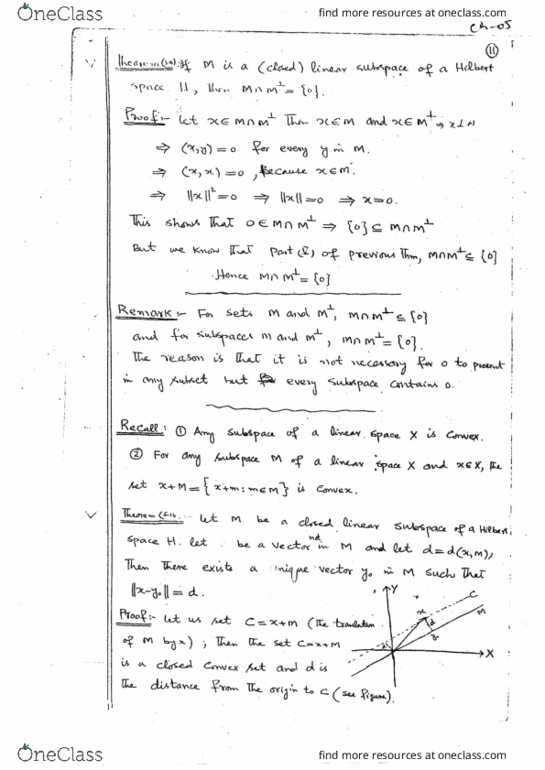 OneClass
find more resources at oneclass.com
Ch-05
11
Theorem: If M is a (closed) linear subspace of a Hilbert
space H, then M∩M⊥ = {0}.
Proof:- Let x∈M∩M⊥ Then x∈M and x∈M⊥ → x⊥M
⇒ (x,y)=0 for every y in M.
⇒ (x,x)=0, because x∈M.
⇒ ||x||²=0 ⇒ ||x||=0 ⇒ x=0.
This shows that 0∈M∩M⊥ ⇒ {0}⊆M∩M⊥
But we know that part of previous Thm, M∩M⊥⊆{0}
Hence M∩M⊥={0}
Remark:- For sets M and M⊥, M∩M⊥⊆{0}
and for subspaces M and M⊥, M∩M⊥={0}.
The reason is that it is not necessary for 0 to present
in any subset but every subspace contains 0.
Recall: ① Any subspace of a linear space X is convex.
② For any subspace M of a linear space X and x∈X, the
set x+M={x+m: m∈M} is convex.
Theorem Let M be a closed linear subspace of a Hilbert
space H. Let be a vector not in M and let d=d(x,M),
Then there exists a unique vector y₀ in M such that
||x-y₀||=d.
Proof:- Let us set C=x+M (the translation
of M by x); then the set C=x+M
is a closed convex set and d is
the distance from the origin to C (see figure).
Y
C
x
M
d
X
OneClass
find more resources at oneclass.com